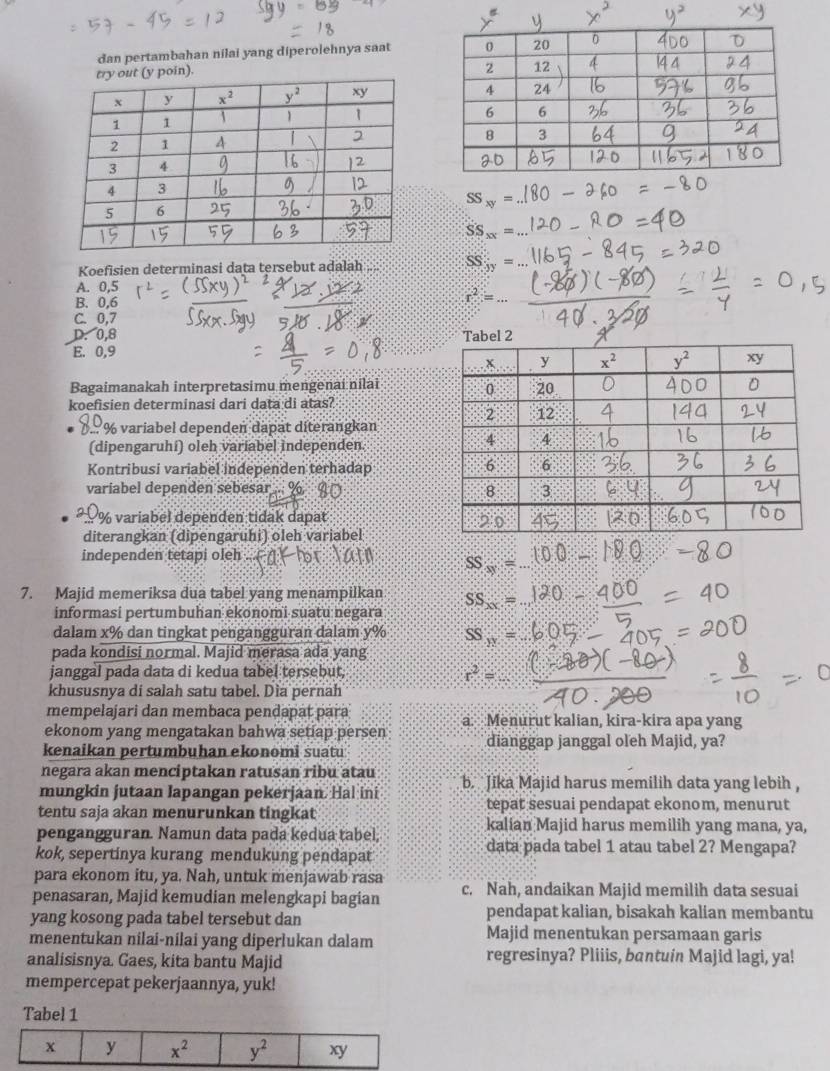 = 57 - 45 = 12
= 18
dan pertambahan nilai yang diperolehnya saat
try out (y poin).
x y x² y² xy
1 1 1 1 1
2 1 4 1 2
3 4 9 16 12
4 3 16 9 12
5 6 25 36 30
15 15 55 63 57
Koefisien determinasi data tersebut adalah ....
A. 0,5
B. 0,6
C. 0,7
D. 0,8
E. 0,9
r² = (SSxy)² / SSxx.Sgy
= 4/5 = 0,8
Bagaimanakah interpretasimu mengenai nilai
koefisien determinasi dari data di atas?
• 80...% variabel dependen dapat diterangkan
(dipengaruhi) oleh variabel independen.
Kontribusi variabel independen terhadap
variabel dependen sebesar ... % 80
• 20...% variabel dependen tidak dapat
diterangkan (dipengaruhi) oleh variabel
independen tetapi oleh ... faktor lain
7. Majid memeriksa dua tabel yang menampilkan
informasi pertumbuhan ekonomi suatu negara
dalam x% dan tingkat pengangguran dalam y%
pada kondisi normal. Majid merasa ada yang
janggal pada data di kedua tabel tersebut,
khususnya di salah satu tabel. Dia pernah
mempelajari dan membaca pendapat para
ekonom yang mengatakan bahwa setiap persen
kenaikan pertumbuhan ekonomi suatu
negara akan menciptakan ratusan ribu atau
mungkin jutaan lapangan pekerjaan. Hal ini
tentu saja akan menurunkan tingkat
pengangguran. Namun data pada kedua tabel,
kok, sepertinya kurang mendukung pendapat
para ekonom itu, ya. Nah, untuk menjawab rasa
penasaran, Majid kemudian melengkapi bagian
yang kosong pada tabel tersebut dan
menentukan nilai-nilai yang diperlukan dalam
analisisnya. Gaes, kita bantu Majid
mempercepat pekerjaannya, yuk!
Tabel 1
x y x² y² xy
x y x² y² xy
0 20 0 400 0
2 12 4 144 24
4 24 16 576 96
6 6 36 36 36
8 3 64 9 24
20 65 120 1165 180
SSxy = ...180 - 260 = -80
SSxx = ...120 - 80 = 40
SSyy = ...1165 - 845 = 320
r² = ... (-80)(-80) / 40 . 320 = 2/4 = 0,5
Tabel 2
x y x² y² xy
0 20 0 400 0
2 12 4 144 24
4 4 16 16 16
6 6 36 36 36
8 3 64 9 24
20 45 120 605 100
SSxy = ...100 - 180 = -80
SSxx = ...120 - 400/5 = 40
SSyy = ...605 - 405 = 200
r² = ... (-80)(-80) / 40 . 200 = 8/10 = 0
a. Menurut kalian, kira-kira apa yang
dianggap janggal oleh Majid, ya?
b. Jika Majid harus memilih data yang lebih ,
tepat sesuai pendapat ekonom, menurut
kalian Majid harus memilih yang mana, ya,
data pada tabel 1 atau tabel 2? Mengapa?
c. Nah, andaikan Majid memilih data sesuai
pendapat kalian, bisakah kalian membantu
Majid menentukan persamaan garis
regresinya? Pliiis, bantuin Majid lagi, ya!